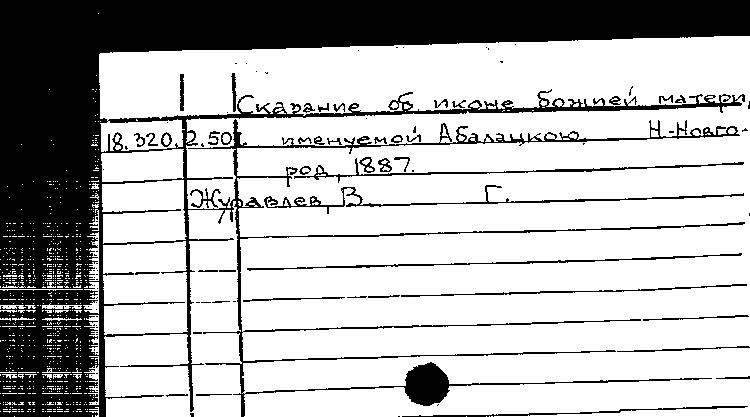 Сказание об иконе божией матери,
18.320.2.501. именуемой Абалацкою, Н-Новго-
род, 1887.
Журавлев, В. Г.